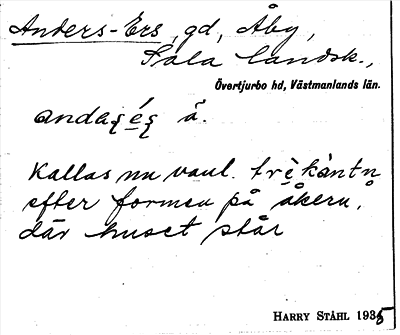 Anders-Ers, gd, Åby,
Sala landsk.,
Övertjurbo hd, Västmanlands län.
å.
Kallas nu vanl. trèkàntn
efter formen på åkern,
där huset står
HARRY STÅHL 1935